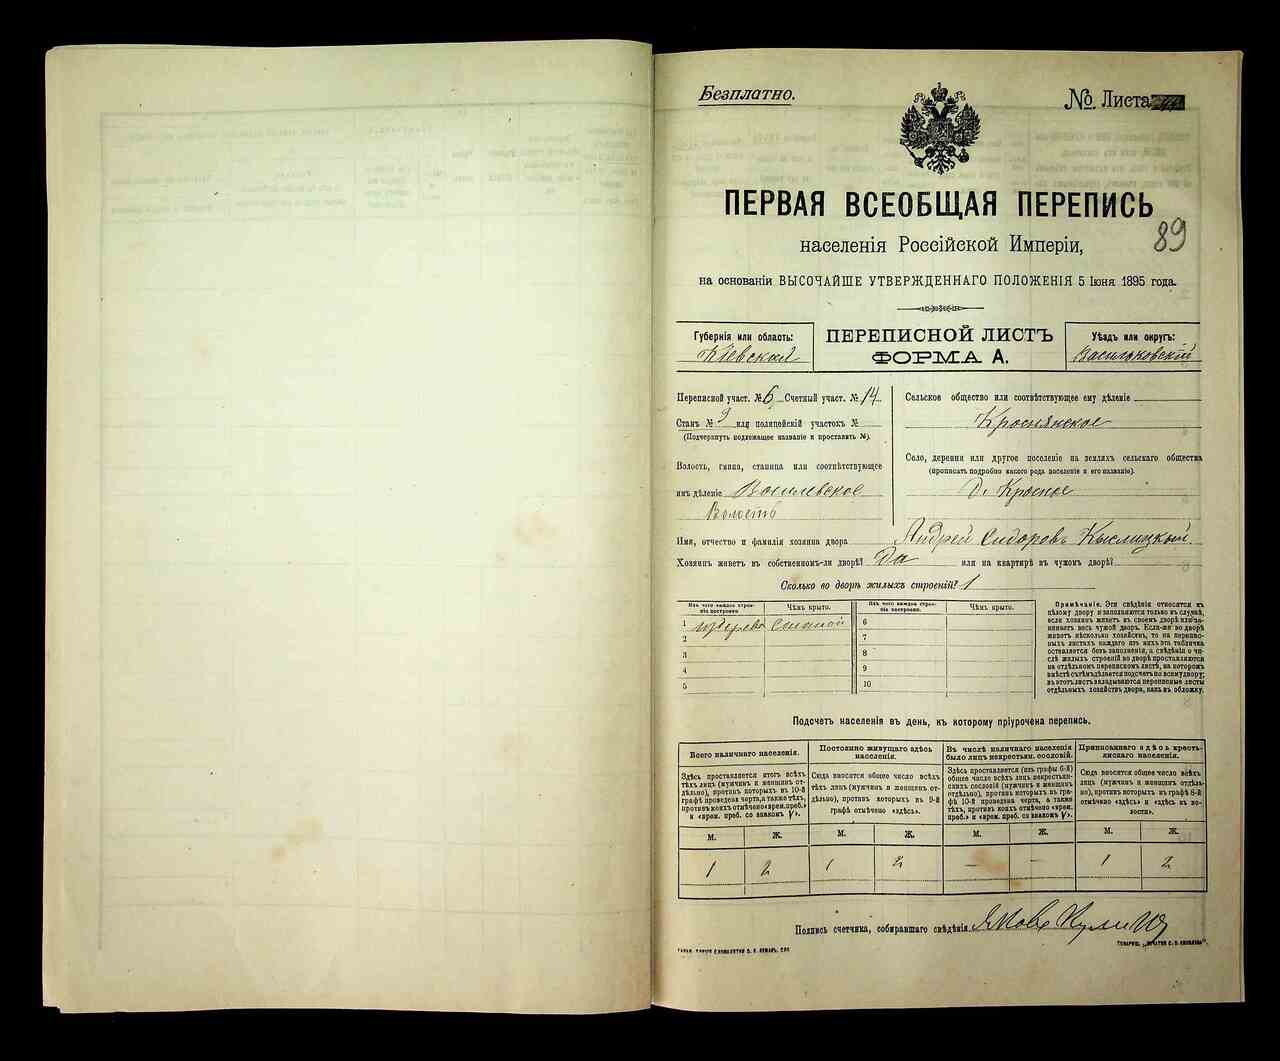 Безплатно.
№ Листа
ПЕРВАЯ ВСЕОБЩАЯ ПЕРЕПИСЬ
89
населенія Россійской Имперіи,
на основаніи ВЫСОЧАЙШЕ УТВЕРЖДЕННАГО ПОЛОЖЕНІЯ 5 Іюня 1895 года.
Губернія или область:
Кіевская
ПЕРЕПИСНОЙ ЛИСТЪ
ФОРМА А.
Уѣздъ или округъ:
Васильковскій
Переписной участ. № 6 Счетный участ. № 14
Станъ № 9 или полицейскій участокъ №
(Подчеркнуть подлежащее названіе и проставить №).
Волость, гмина, станица или соотвѣтствующее
имъ дѣленіе Василевское
Волость
Сельское общество или соотвѣтствующее ему дѣленіе
Кроснянское
Село, деревня или другое поселеніе на земляхъ сельскаго общества
(прописать подробно какого рода поселеніе и его названіе).
Д. Красное
Имя, отчество и фамилія хозяина двора Андрей Сидоровъ Кыслицкый
Хозяинъ живетъ въ собственномъ-ли дворѣ? Да или на квартирѣ въ чужомъ дворѣ?
Сколько во дворѣ жилыхъ строеній? 1
Изъ чего каждое строеніе построено
Чѣмъ крыто.
Изъ чего каждое строеніе построено
Чѣмъ крыто.
1 изъ дерева Соломой
2
3
4
5
6
7
8
9
10
Примѣчаніе. Эти свѣдѣнія относятся къ
цѣлому двору и заполняются только въ случаѣ,
если хозяинъ живетъ въ своемъ дворѣ или занимаетъ
весь чужой дворъ. Если-же во дворѣ
живетъ нѣсколько хозяйствъ, то на переписныхъ
листахъ каждаго изъ нихъ эта табличка
оставляется безъ заполненія, а свѣдѣнія о числѣ
жилыхъ строеній во дворѣ проставляются
на отдѣльномъ переписномъ листѣ, на которомъ
вмѣстѣ съ тѣмъ дѣлается подсчетъ по всему двору;
въ этотъ листъ вкладываются переписные листы
отдѣльныхъ хозяйствъ двора, какъ въ обложку.
Подсчетъ населенія въ день, къ которому пріурочена перепись.
Всего наличнаго населенія.
Здѣсь проставляется итогъ всѣхъ
лицъ (мужчинъ и женщинъ отдѣльно),
противъ которыхъ въ 10-й
графѣ проведена черта, а также тѣхъ,
противъ коихъ отмѣчено «врем. преб.»
и «врем. преб. со знакомъ V».
Постоянно живущаго здѣсь
населенія.
Сюда вносится общее число всѣхъ
тѣхъ лицъ (мужчинъ и женщинъ отдѣльно),
противъ которыхъ въ 9-й
графѣ отмѣчено «здѣсь».
Въ числѣ наличнаго населенія
было лицъ некрестьян. сословій.
Здѣсь проставляется (изъ графы 6-й)
общее число всѣхъ лицъ некрестьянскихъ
сословій (мужчинъ и женщинъ
отдѣльно), противъ которыхъ въ графѣ
10-й проведена черта, а также
тѣхъ, противъ коихъ отмѣчено «врем.
преб.» и «врем. преб. со знакомъ V».
Приписаннаго здѣсь крестьянскаго
населенія.
Сюда вносится общее число всѣхъ
лицъ (мужчинъ и женщинъ отдѣльно),
противъ которыхъ въ графѣ 8-й
отмѣчено «здѣсь» и «здѣсь въ волости».
М. Ж. М. Ж. М. Ж. М. Ж.
1 2 1 2 — — 1 2
Подпись счетчика, собиравшаго свѣдѣнія